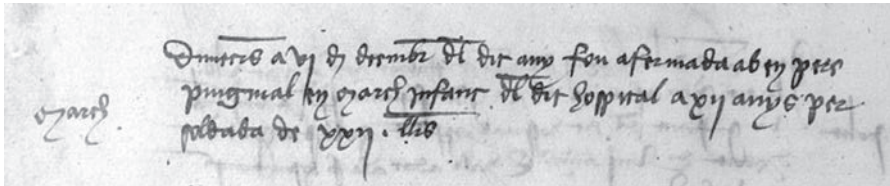 Dimecrs a vi de decembr del dit any fou afermada ab en pere
March
puigmal en March infant del dit hospital a xii anys per
soldada de xxii. llrs